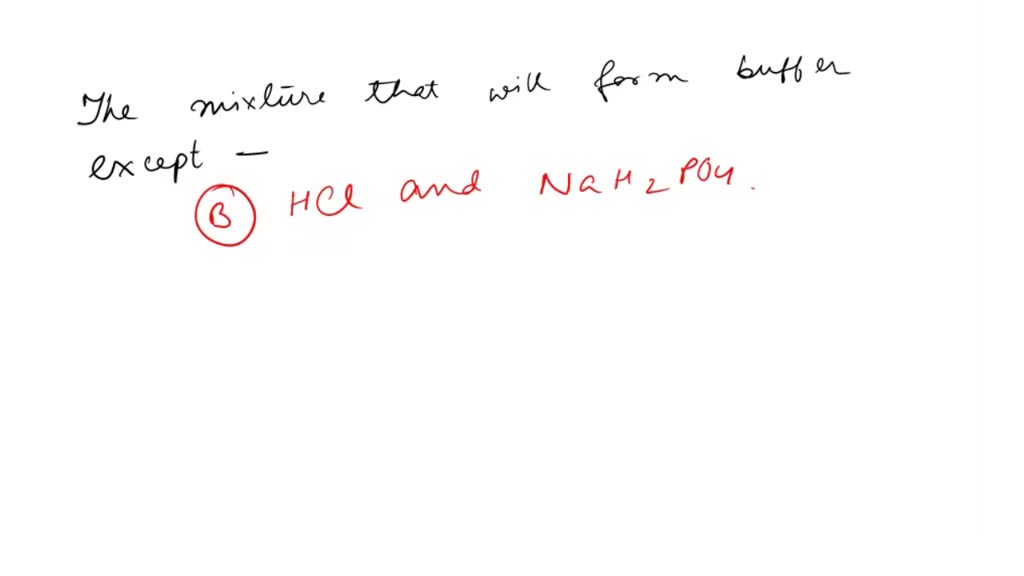 The mixture that will form buffer
except —
B HCl and NaH2PO4.